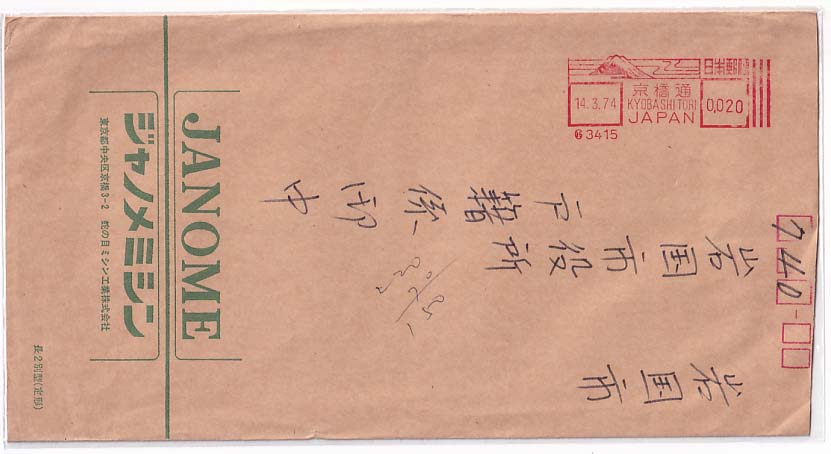 日本郵便
京橋通
14.3.74
KYOBASHI TORI
0,020
JAPAN
3415
740
岩国市
岩国市役所
戸籍係 御中
JANOME
ジャノメミシン
東京都中央区京橋3-2 蛇の目ミシン工業株式会社
長2別型(定形)